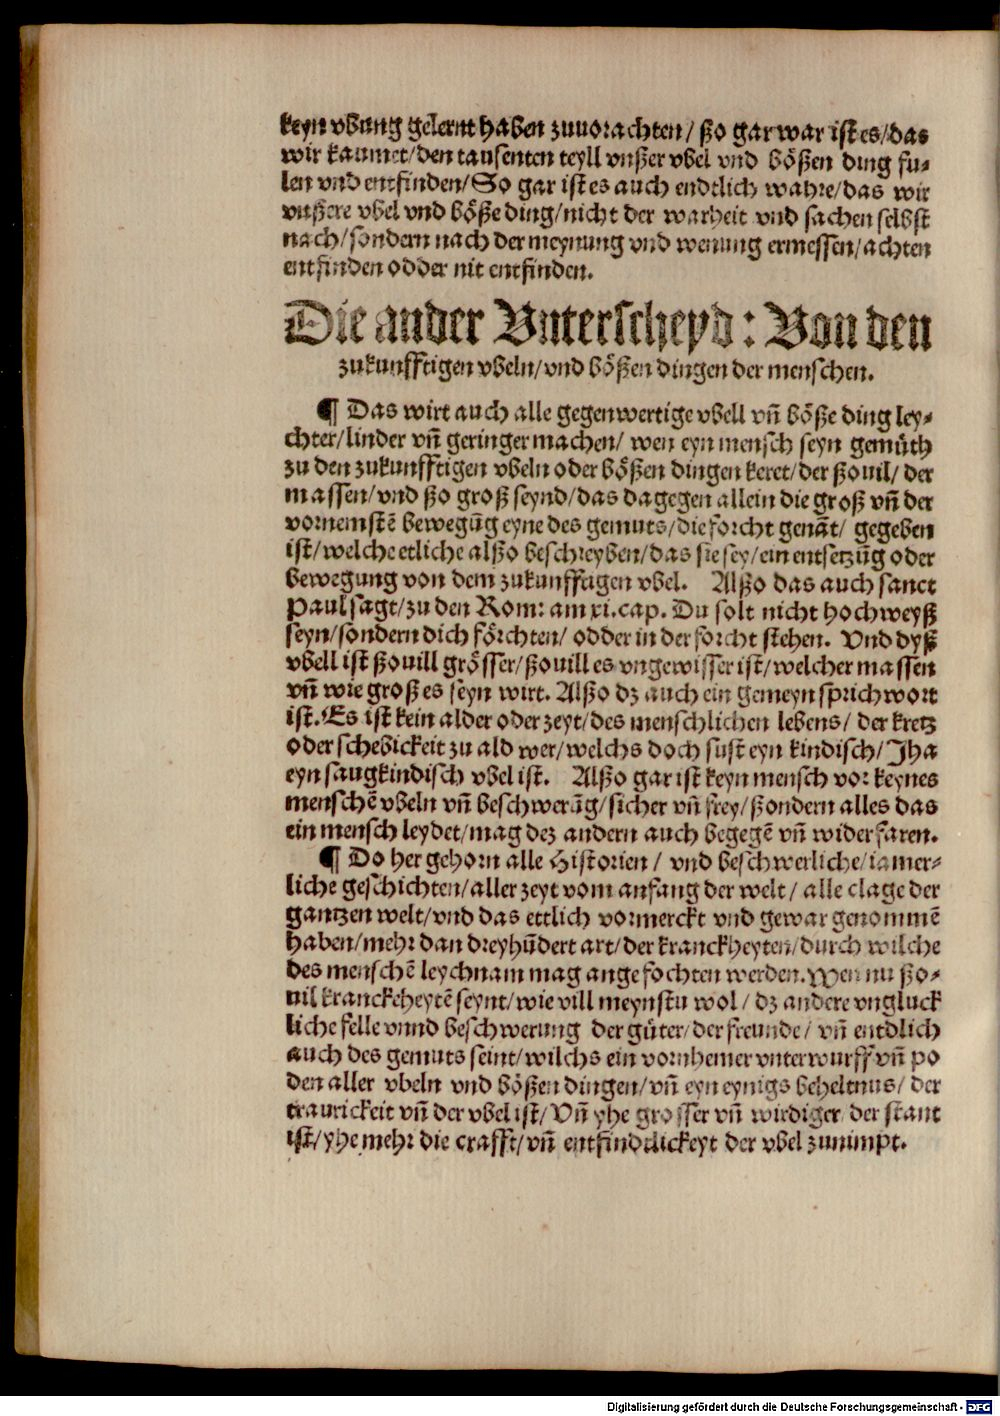 keyn vbung gelernt haben zuuorachten / ßo gar war ist es / das
wir kaumet / den tausenten teyll vnßer vbel vnd bößen ding fu-
len vnd entfinden / So gar ist es auch endtlich wahre / das wir
vnßere vbel vnd böße ding / nicht der warheit vnd sachen selbst
nach / sondern nach der meynung vnd wenung ermessen / achten
entfinden odder nit entfinden.
Die ander Vnterscheyd: Von den
zukunfftigen vbeln / vnd bößen dingen der menschen.
¶ Das wirt auch alle gegenwertige vbell vn̄ böße ding ley-
chter / linder vn̄ geringer machen / wen eyn mensch seyn gemüth
zu den zukunfftigen vbeln oder bößen dingen keret / der ßouil / der
massen / vnd ßo groß seynd / das dagegen allein die groß vn̄ der
vornemstē bewegūg eyne des gemuts / die forcht genāt / gegeben
ist / welche etliche alßo beschreyben / das sie sey / ein entsetzūg oder
bewegung von dem zukunfftigen vbel. Alßo das auch sanct
Paul sagt / zu den Rom: am xi. cap. Du solt nicht hochweyß
seyn / sondern dich förchten / odder in der forcht stehen. Vnd dyß
vbell ist ßouill grösser / ßouill es vngewisser ist / welcher massen
vn̄ wie groß es seyn wirt. Alßo dz auch ein gemeyn sprichwort
ist. Es ist kein alder oder zeyt / des menschlichen lebens / der kretz
oder schebickeit zu ald wer / welchs doch sust eyn kindisch / Jha
eyn saugkindisch vbel ist. Alßo gar ist keyn mensch vor keynes
menschē vbeln vn̄ beschwerūg / sicher vn̄ frey / ßondern alles das
ein mensch leydet / mag dez andern auch begegē vn̄ widerfaren.
¶ Do her gehorn alle Historien / vnd beschwerliche / iamer-
liche geschichten / aller zeyt vom anfang der welt / alle clage der
gantzen welt / vnd das ettlich vormerckt vnd gewar genommē
haben / mehr dan dreyhūdert art / der kranckheyten / durch wilche
des menschē leychnam mag angefochten werden. Wen nu ßo-
uil kranckheytē seynt / wie vill meynstu wol / dz andere vngluck
liche felle vnnd beschwerung der güter / der freunde / vn̄ entdlich
auch des gemuts seint / wilchs ein vornhemer vnterwurff vn̄ po
den aller vbeln vnd bößen dingen / vn̄ eyn eynigs beheltnus / der
traurickeit vn̄ der vbel ist / Vn̄ yhe grosser vn̄ wirdiger der stant
ist / yhe mehr die crafft / vn̄ entfindtlickeyt der vbel zunimpt.
Digitalisierung gefördert durch die Deutsche Forschungsgemeinschaft - DFG